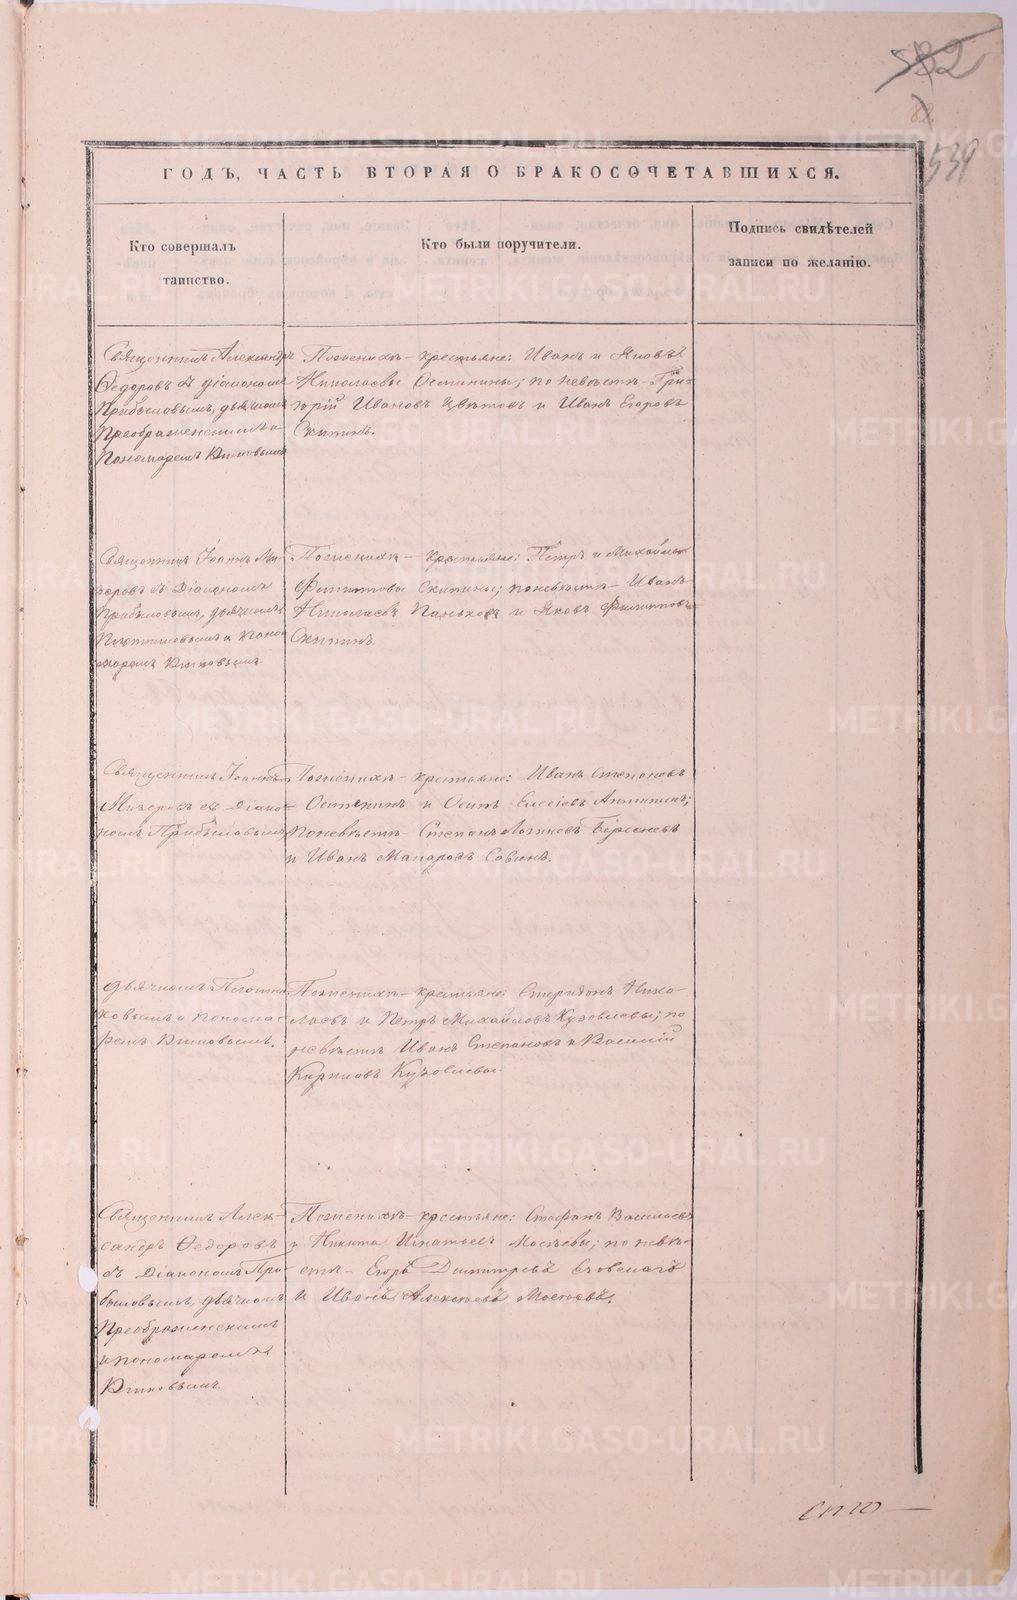 582
82.
539
ГОДЪ, ЧАСТЬ ВТОРАЯ О БРАКОСОЧЕТАВШИХСЯ.
Кто совершалъ
таинство.
Кто были поручители.
Подпись свидѣтелей
записи по желанію.
Священникъ Александръ
Ѳедоровъ съ діакономъ
Прибыловымъ, дьячкомъ
Преображенскимъ и
Пономаремъ
По женихѣ - крестьяне: Иванъ и Яковъ
Николаевы Останины; по невѣстѣ - Гри-
горій Ивановъ Цвѣтовъ и Иванъ Егоровъ
Скитинъ.
Священникъ Іоаннъ Ми-
зеровъ съ Діакономъ
Прибыловымъ, дьячкомъ
Плотниковымъ и Поно-
маремъ
По женихѣ - крестьяне: Петръ и Михайло
Филипповы Скитины; по невѣстѣ - Иванъ
Николаевъ Паньковъ и Яковъ Филипповъ
Скитинъ
Священникъ Іоаннъ
Мизеровъ съ Діако-
номъ Прибыловымъ
По женихѣ - крестьяне: Иванъ Степановъ
Останинъ и Осипъ Елисѣевъ Антипинъ;
по невѣстѣ - Степанъ Логиновъ Береневъ
и Иванъ Макаровъ Савинъ.
Дьячкомъ Плотни-
ковымъ и понома-
ремъ
По женихѣ - крестьяне: Спиридонъ Нико-
лаевъ и Петръ Михайловъ Кузовлевы; по
невѣстѣ Иванъ Степановъ и Василій
Карповъ Кузовлевы.
Священникъ Алек-
сандръ Ѳедоровъ
съ Діакономъ При-
быловымъ, дьячкомъ
Преображенскимъ
и пономаремъ
По женихѣ - крестьяне: Стефанъ Васильевъ
и Никита Игнатьевъ Мостовы; по невѣ-
стѣ - Егоръ Димитріевъ
и Иванъ Алексѣевъ Мостовъ.
METRIKI.GASO-URAL.RU